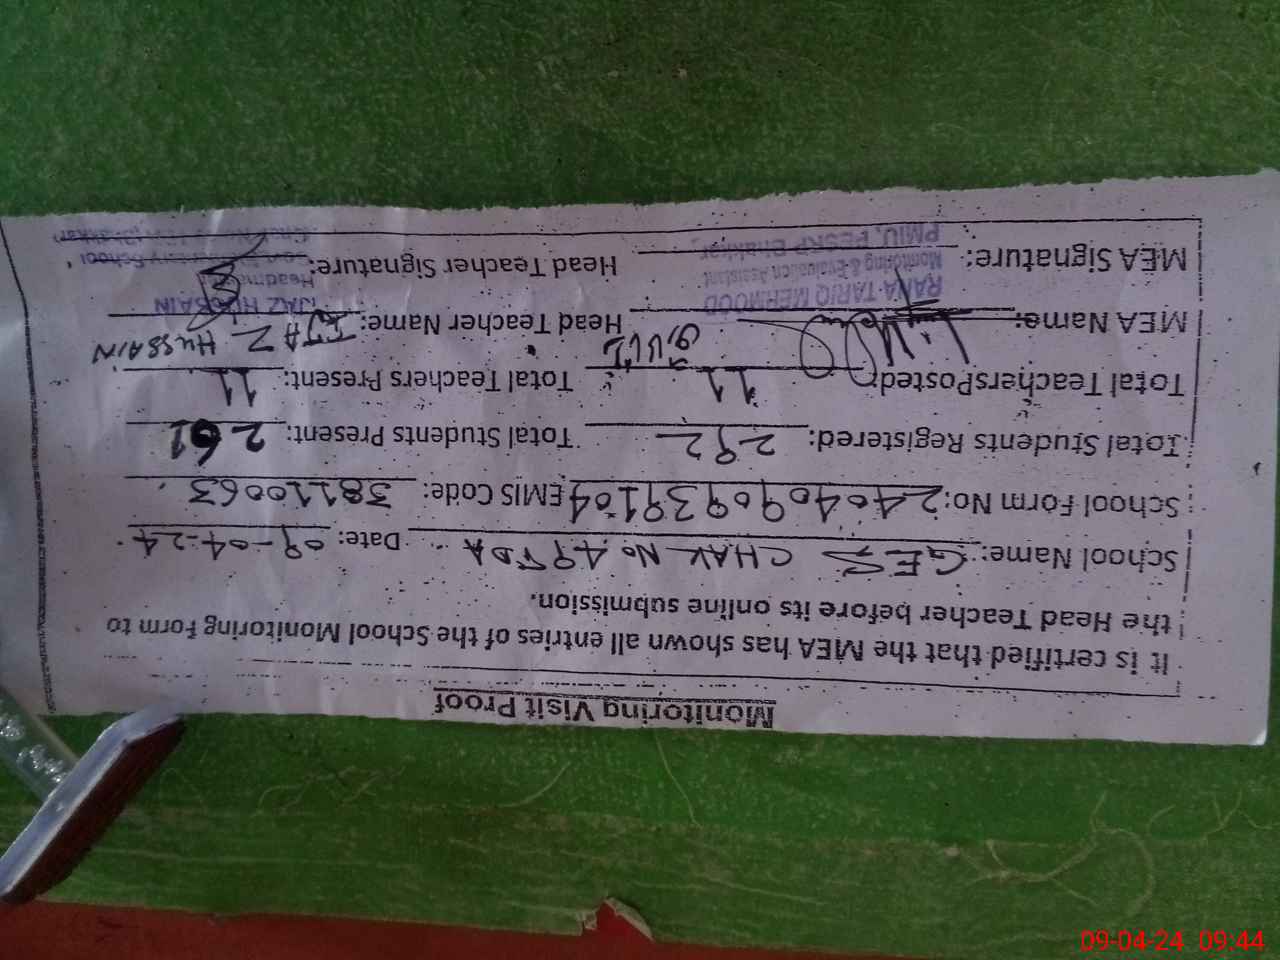 Monitoring Visit Proof
It is certified that the MEA has shown all entries of the School Monitoring Form to
the Head Teacher before its online submission.
School Name: GES CHAK No 49 TDA Date: 09-04-24
School Form No: 2404090939104 EMIS Code: 38110063
Total Students Registered: 292 Total Students Present: 261
Total Teachers Posted: 11 Total Teachers Present: 11
MEA Name: Head Teacher Name: IJAZ HUSSAIN
RANA TARIQ MEHMOOD IJAZ HUSSAIN
Monitoring & Evaluation Assistant Headmaster
MEA Signature: Head Teacher Signature:
PMIU, PESRP Bhakkar
09-04-24 09:44